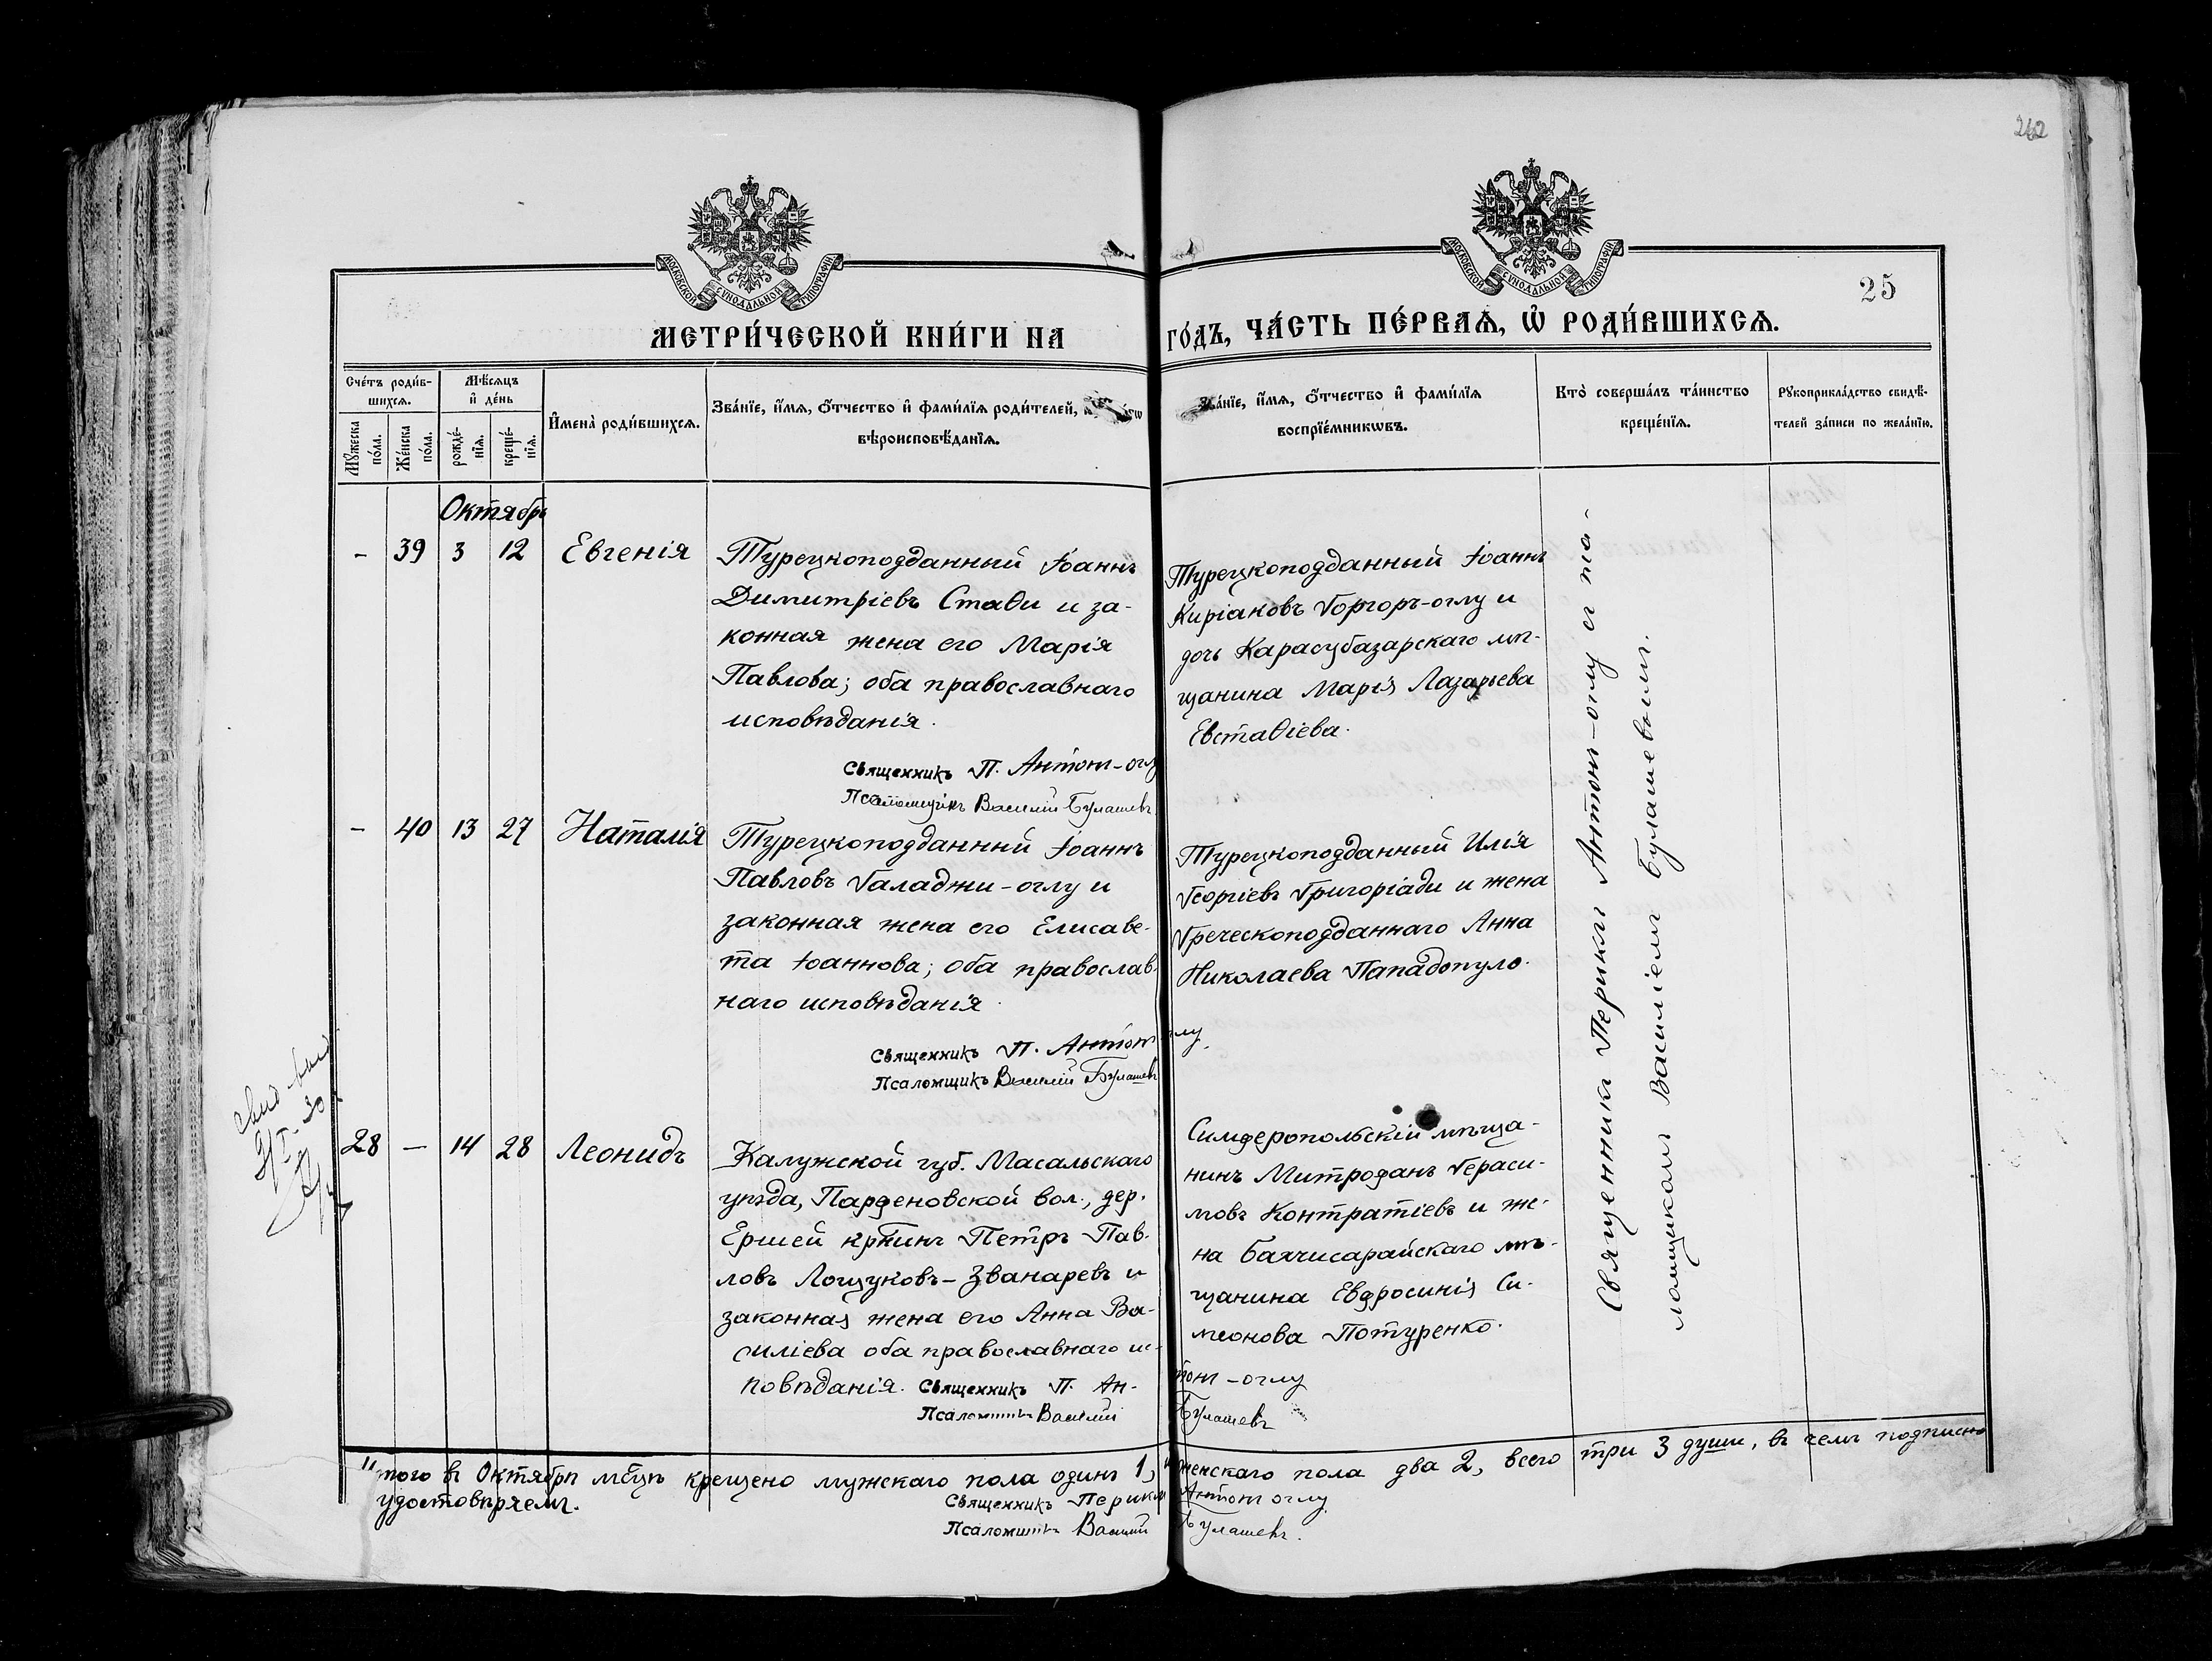 262
МОСКОВСКОЙ СѴНОДАЛЬНОЙ ТИПОГРАФІИ
МОСКОВСКОЙ СѴНОДАЛЬНОЙ ТИПОГРАФІИ
25
МЕТРИ́ЧЕСКОЙ КНИ́ГИ НА
ГО́ДЪ, ЧА́СТЬ ПЕ́РВАѦ, Ѡ҆ РОДИ́ВШИХСѦ.
Сче́тъ роди́в-
шихсѧ.
Мѣ́сѧцъ
и҆ де́нь
Мꙋ́жеска
по́ла.
Же́нска
по́ла.
рожде́-
нїѧ.
креще́-
нїѧ.
И҆мена̀ роди́вшихсѧ.
Зва́нїе, и҆́мѧ, ѻ҆́тчество и҆ фами́лїѧ роди́телей,
вѣроисповѣ́данїѧ.
Зва́нїе, и҆́мѧ, ѻ҆́тчество и҆ фами́лїѧ
воспрїе́мникѡвъ.
Кто̀ соверша́лъ та́инство
креще́нїѧ.
Рꙋкоприкла́дство свидѣ́-
телей за́писи по жела́нїю.
Октябрь
- 39 3 12 Евгенія
Турецкоподданный Іоаннъ
Димитріевъ Стаѳи и за-
конная жена его Марія
Павлова; оба православнаго
исповѣданія.
Священникъ П. Антонъ-оглу
Псаломщикъ Василій Булашевъ
Турецкоподданный Іоаннъ
Киріаковъ Горгоръ-оглу и
дочь Карасубазарскаго мѣ-
щанина Марія Лазарьева
Евстаѳіева.
- 40 13 27 Наталія
Турецкоподданный Іоаннъ
Павловъ Галаджи-оглу и
законная жена его Елисаве-
та Іоаннова; оба православ-
наго исповѣданія.
Священникъ П. Антонъ-оглу.
Псаломщикъ Василій Булашевъ
Турецкоподданный Илія
Георгіевъ Григоріади и жена
Греческоподданнаго Анна
Николаева Пападопуло.
28 - 14 28 Леонидъ
Калужской губ. Масальскаго
уѣзда, Парфеновской вол., дер.
Ершей кр̃нинъ Петръ Пав-
ловъ Лощуковъ-Званаревъ и
законная жена его Анна Ва-
силіева оба православнаго ис-
повѣданія. Священникъ П. Антонъ-оглу
Псаломщикъ Василій Булашевъ
Симферопольскій мѣща-
нинъ Митрофанъ Гераси-
мовъ Контратіевъ и же-
на Бахчисарайскаго мѣ-
щанина Евфросинія Си-
меонова Потуренко.
Священникъ Периклъ Антонъ-оглу съ пса-
ломщикомъ Василіемъ Булашевымъ.
Итого въ Октябрѣ мс̃цѣ крещено мужскаго пола одинъ 1, женскаго пола два 2, всего три 3 души, въ чемъ подписью
удостовѣряемъ.
Священникъ Периклъ Антонъ оглу
Псаломщикъ Василій Булашевъ.